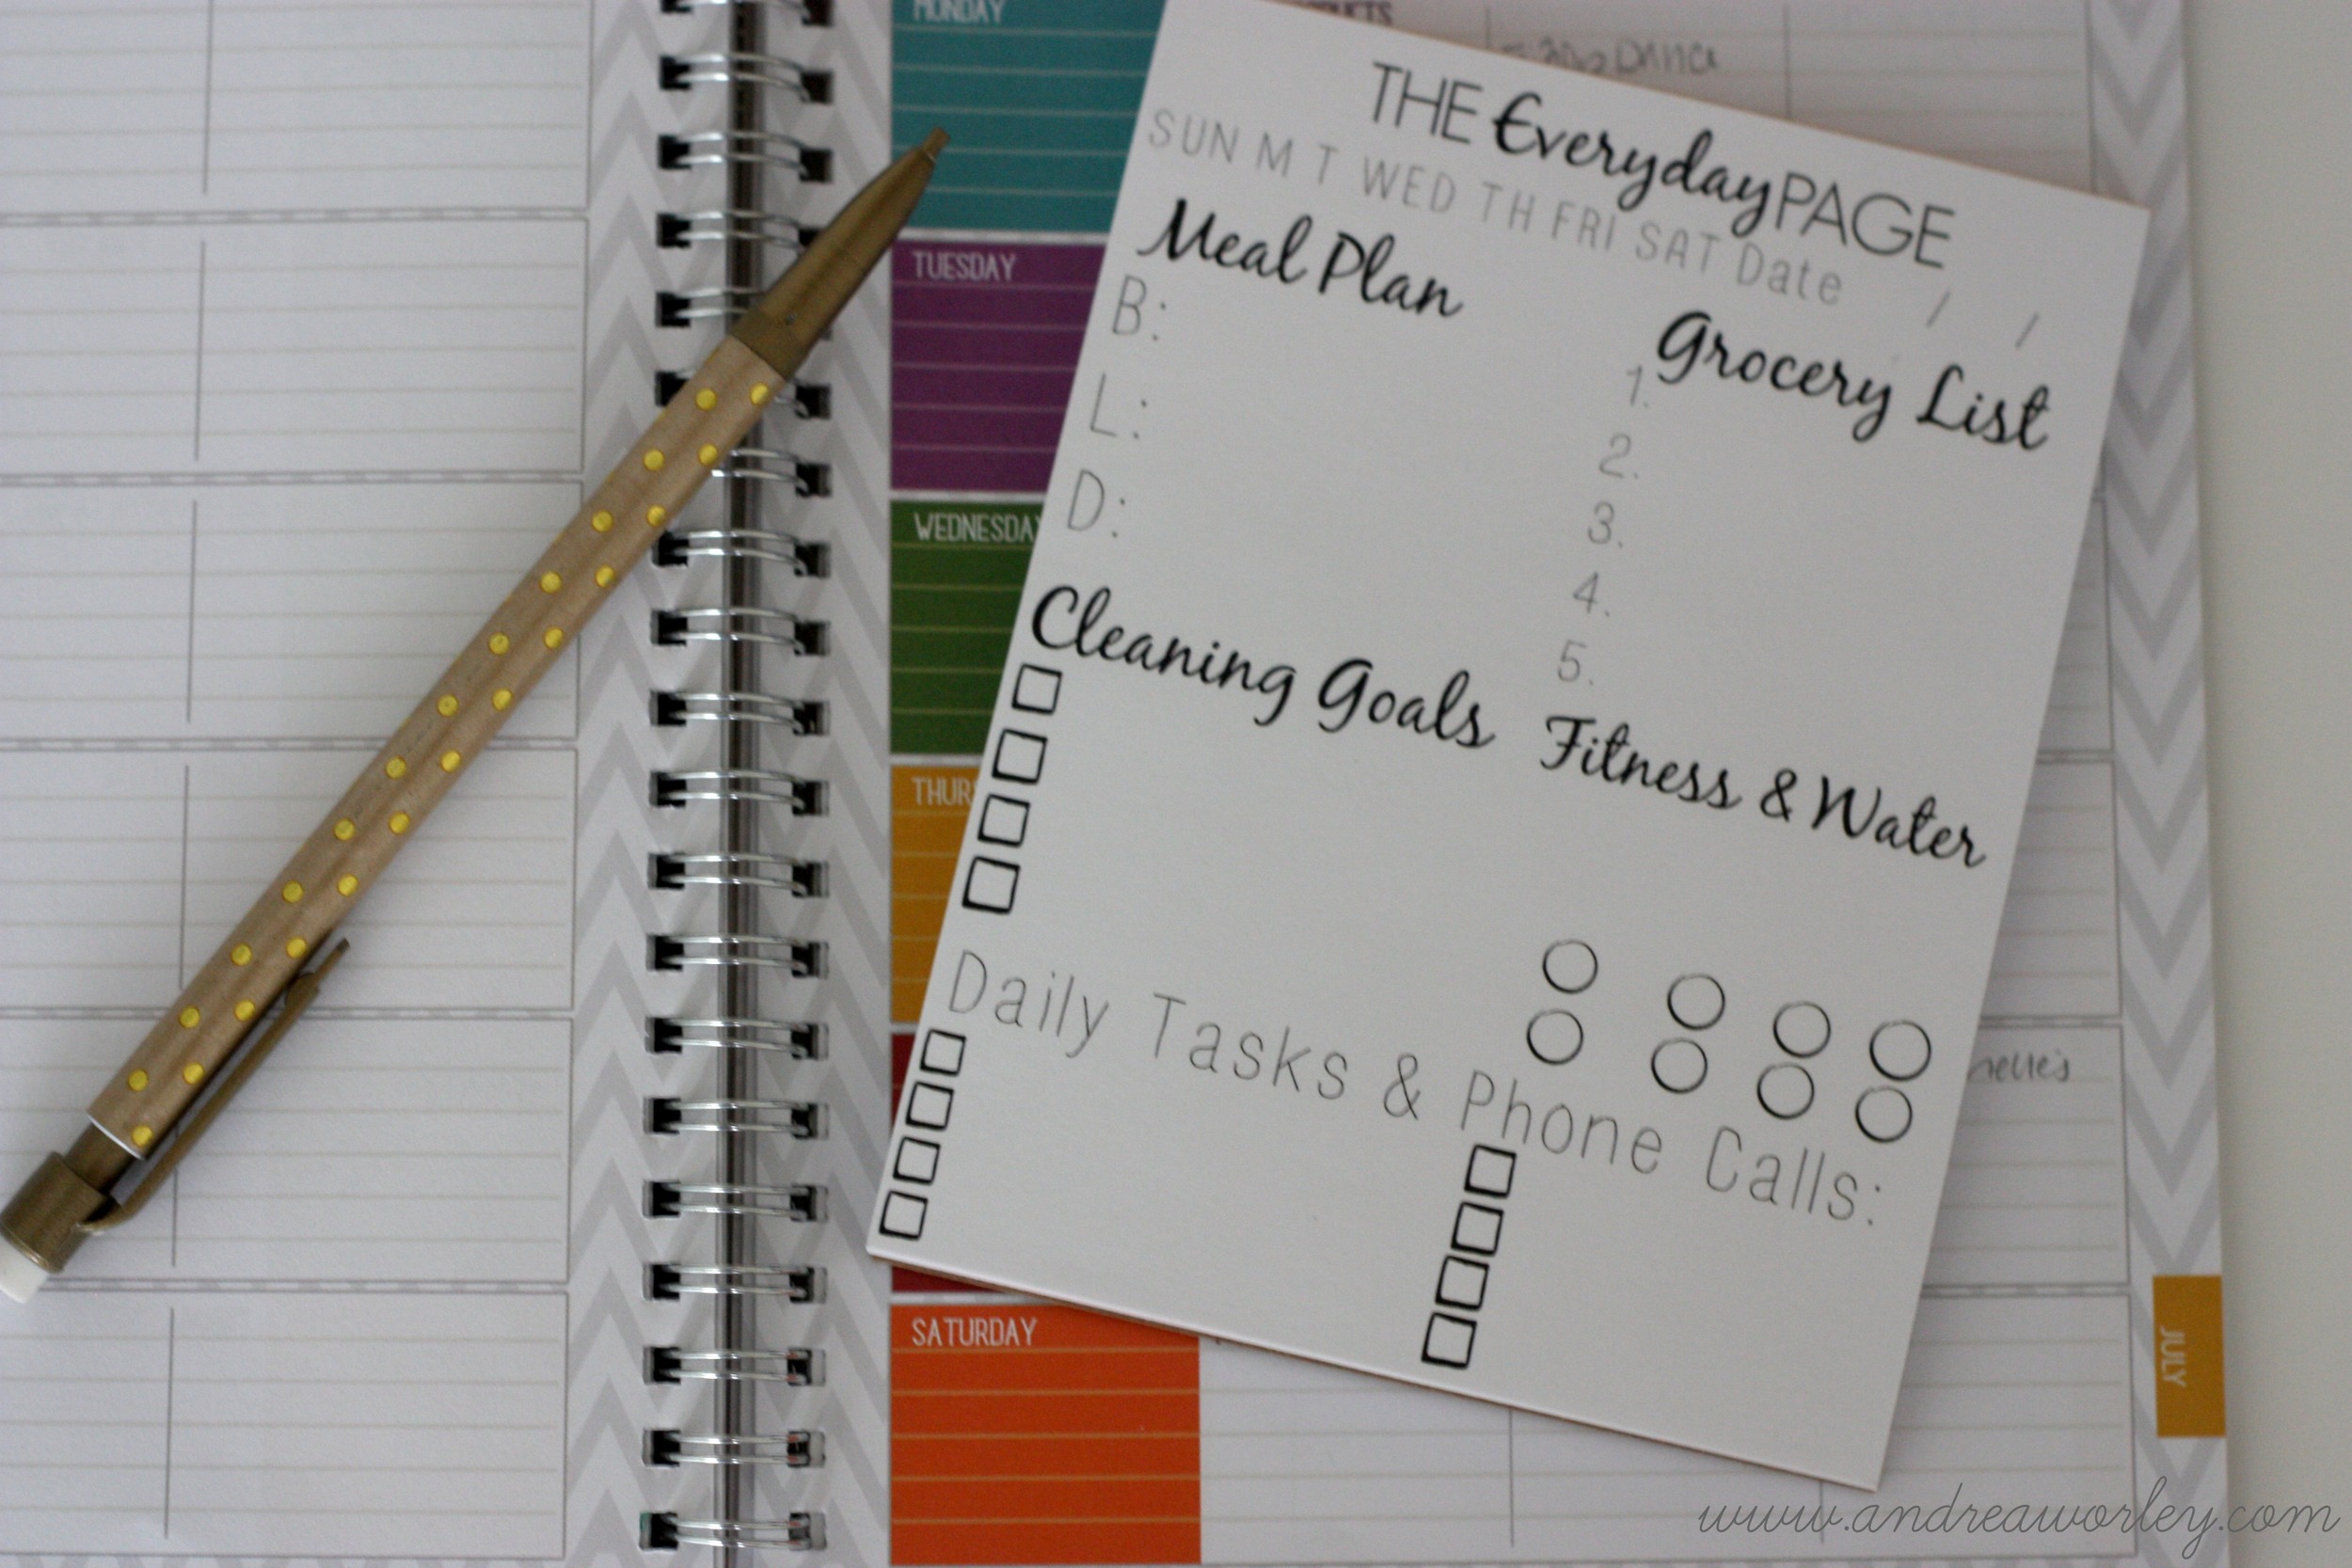 MONDAY
DANCE
THE Everyday PAGE
SUN M T WED TH FRI SAT Date / /
TUESDAY
Meal Plan
B:
L:
D:
Grocery List
1.
2.
3.
4.
5.
WEDNESDAY
Cleaning Goals
Fitness & Water
THURS
Daily Tasks & Phone Calls:
SATURDAY
JULY
www.andreaworley.com